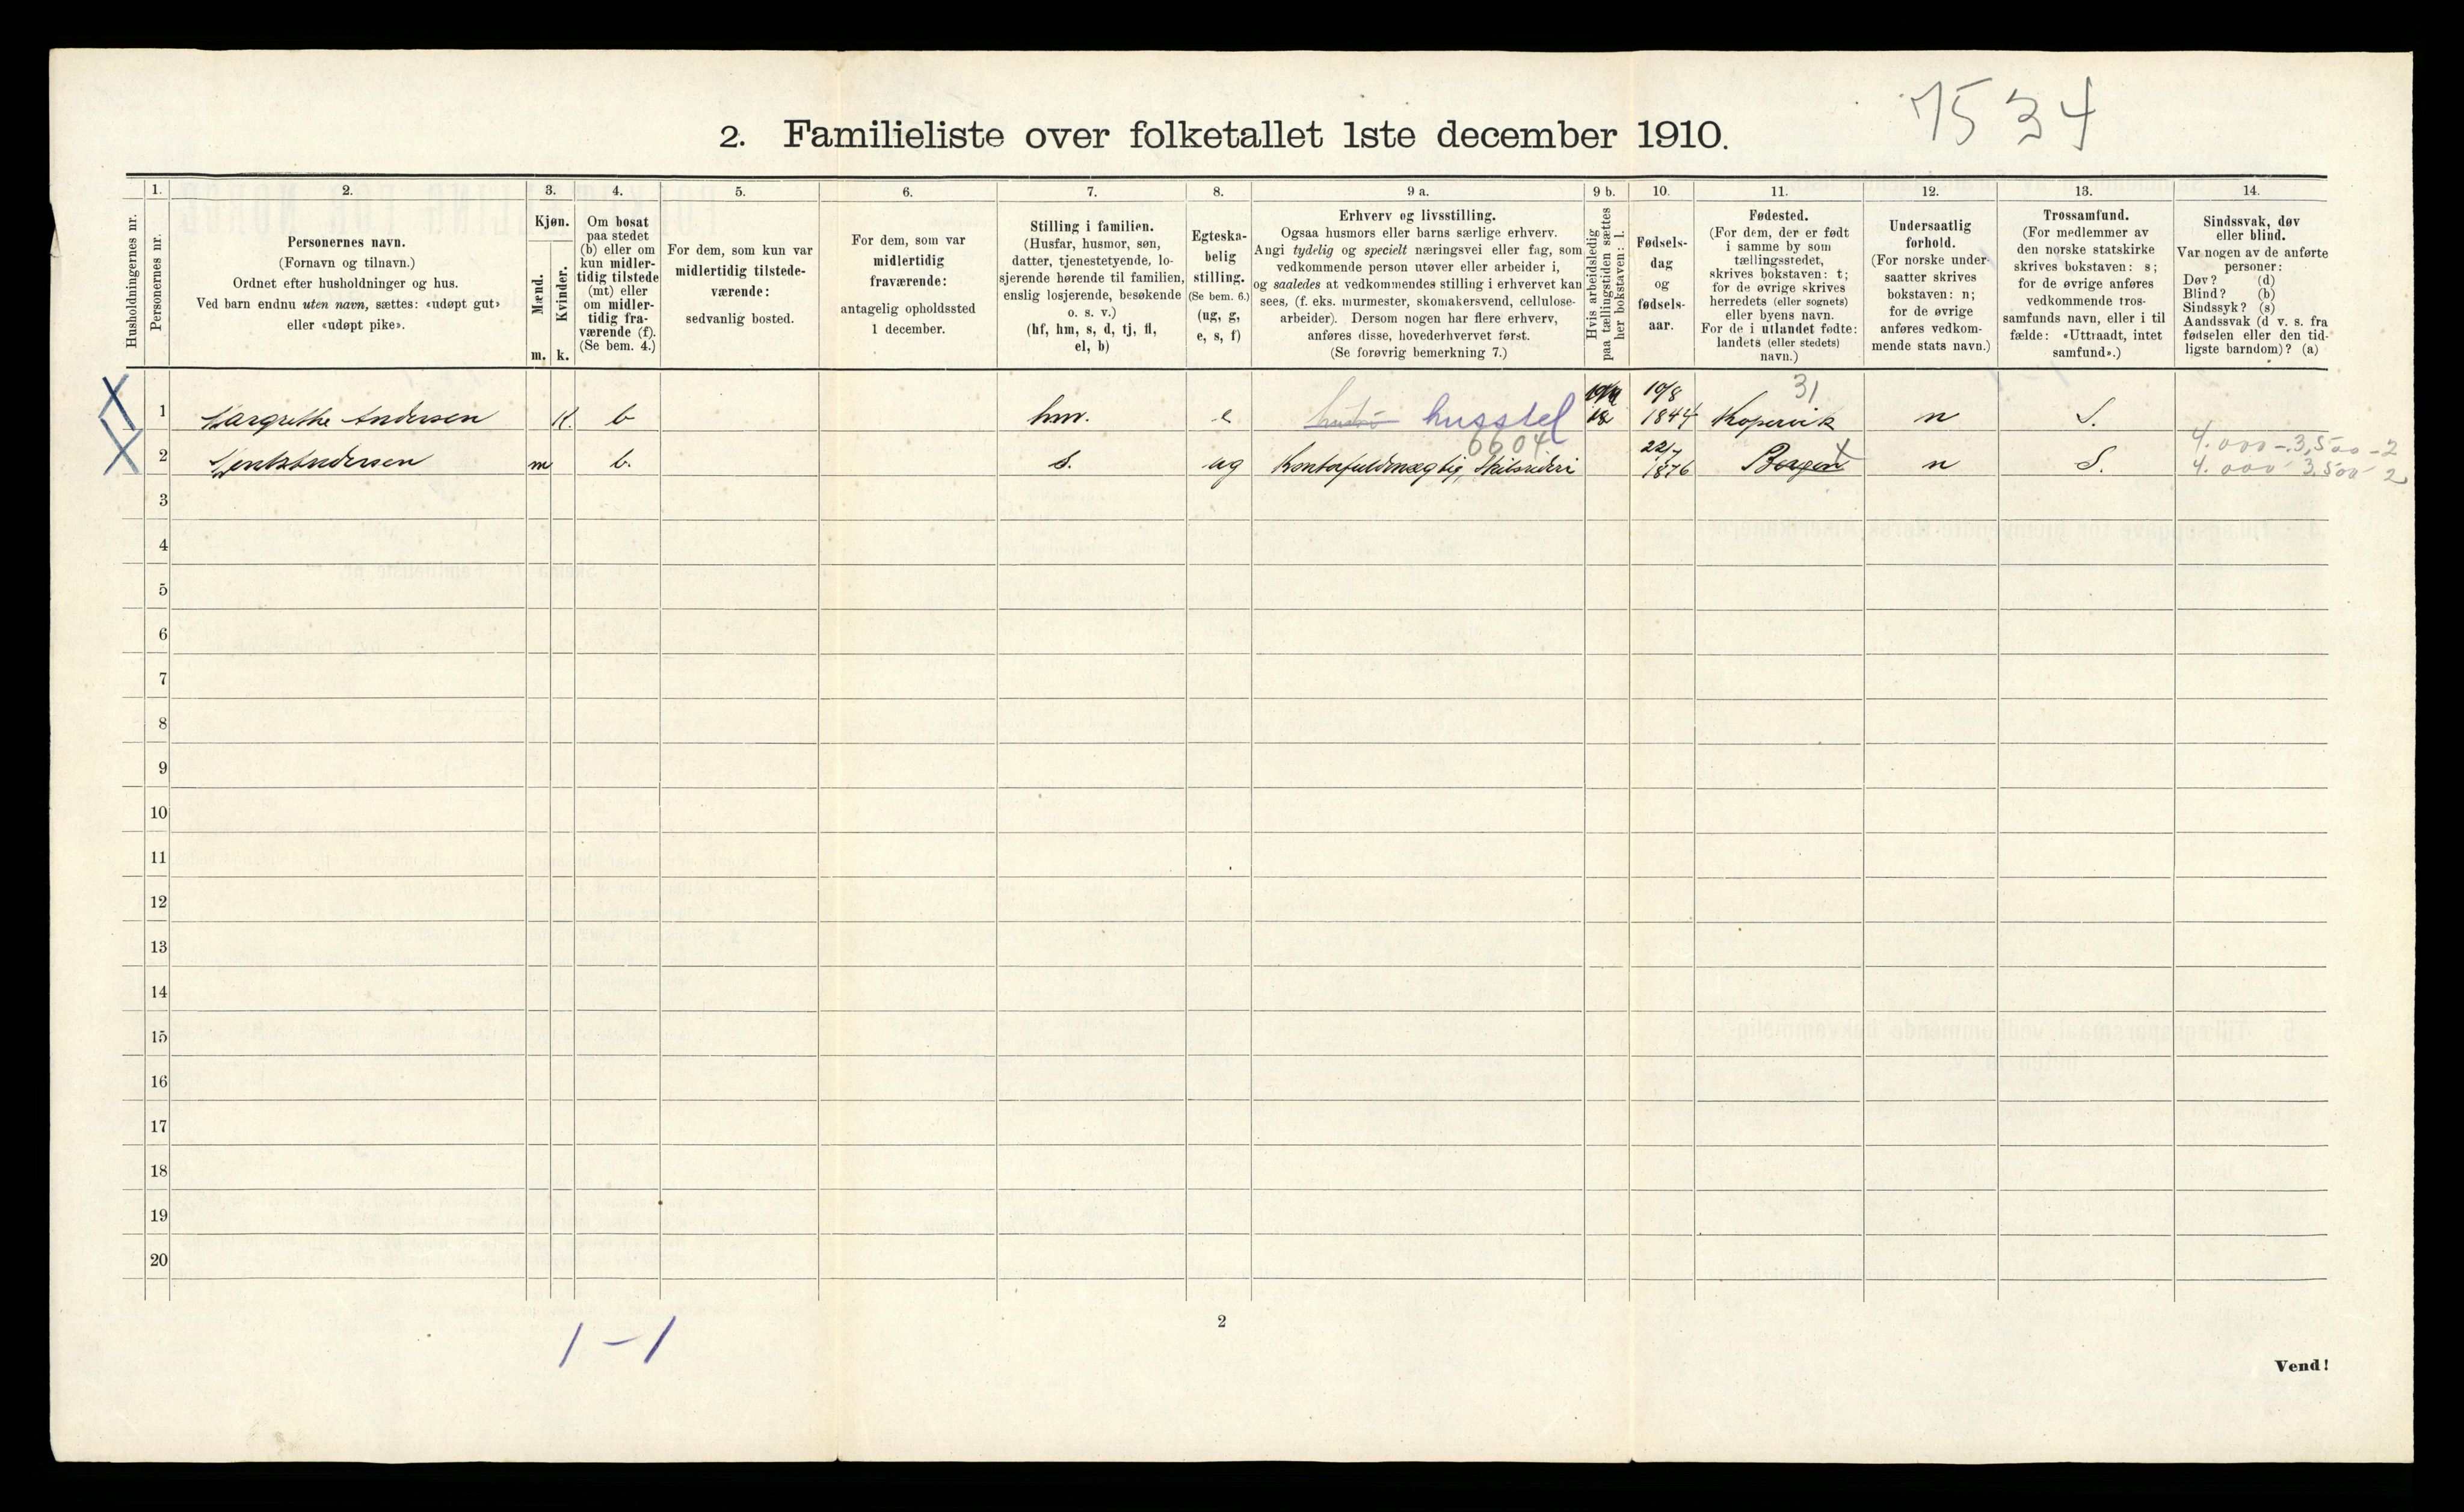 7534
2. Familieliste over folketallet 1ste december 1910.
1. 2. 3. 4. 5. 6. 7. 8. 9 a. 9 b. 10. 11. 12. 13. 14.
Husholdningernes nr.
Personernes nr.
Personernes navn.
(Fornavn og tilnavn.)
Ordnet efter husholdninger og hus.
Ved barn endnu uten navn, sættes: «udøpt gut»
eller «udøpt pike».
Kjøn.
Mænd.
Kvinder.
m. k.
Om bosat
paa stedet
(b) eller om
kun midler-
tidig tilstede
(mt) eller
om midler-
tidig fra-
værende (f).
(Se bem. 4.)
For dem, som kun var
midlertidig tilstede-
værende:
sedvanlig bosted.
For dem, som var
midlertidig
fraværende:
antagelig opholdssted
1 december.
Stilling i familien.
(Husfar, husmor, søn,
datter, tjenestetyende, lo-
sjerende hørende til familien,
enslig losjerende, besøkende
o. s. v.)
(hf, hm, s, d, tj, fl,
el, b)
Egteska-
belig
stilling.
(Se bem. 6.)
(ug, g,
e, s, f)
Erhverv og livsstilling.
Ogsaa husmors eller barns særlige erhverv.
Angi tydelig og specielt næringsvei eller fag, som
vedkommende person utøver eller arbeider i,
og saaledes at vedkommendes stilling i erhvervet kan
sees, (f. eks. murmester, skomakersvend, cellulose-
arbeider). Dersom nogen har flere erhverv,
anføres disse, hovederhvervet først.
(Se forøvrig bemerkning 7.)
Hvis arbeidsledig
paa tællingstiden sættes
her bokstaven: l.
Fødsels-
dag
og
fødsels-
aar.
Fødested.
(For dem, der er født
i samme by som
tællingsstedet,
skrives bokstaven: t;
for de øvrige skrives
herredets (eller sognets)
eller byens navn.
For de i utlandet fødte:
landets (eller stedets)
navn.)
Undersaatlig
forhold.
(For norske under-
saatter skrives
bokstaven: n;
for de øvrige
anføres vedkom-
mende stats navn.)
Trossamfund.
(For medlemmer av
den norske statskirke
skrives bokstaven: s;
for de øvrige anføres
vedkommende tros-
samfunds navn, eller i til
fælde: «Uttraadt, intet
samfund».)
Sindssvak, døv
eller blind.
Var nogen av de anførte
personer:
Døv? (d)
Blind? (b)
Sindssyk? (s)
Aandssvak (d v. s. fra
fødselen eller den tid-
ligste barndom)? (a)
1 Margrethe Andersen K. b hm. e husstel 10/8 1844 Kopervik 31 n S.
6604
2 Andersen m b. s. ug Kontorfuldmægtig, Skibsrederi 22/7 1876 Bergen t n S.
4.000-3,500-2
4.000 3.500 2
3
4
5
6
7
8
9
10
11
12
13
14
15
16
17
18
19
20
1-1
2
Vend!